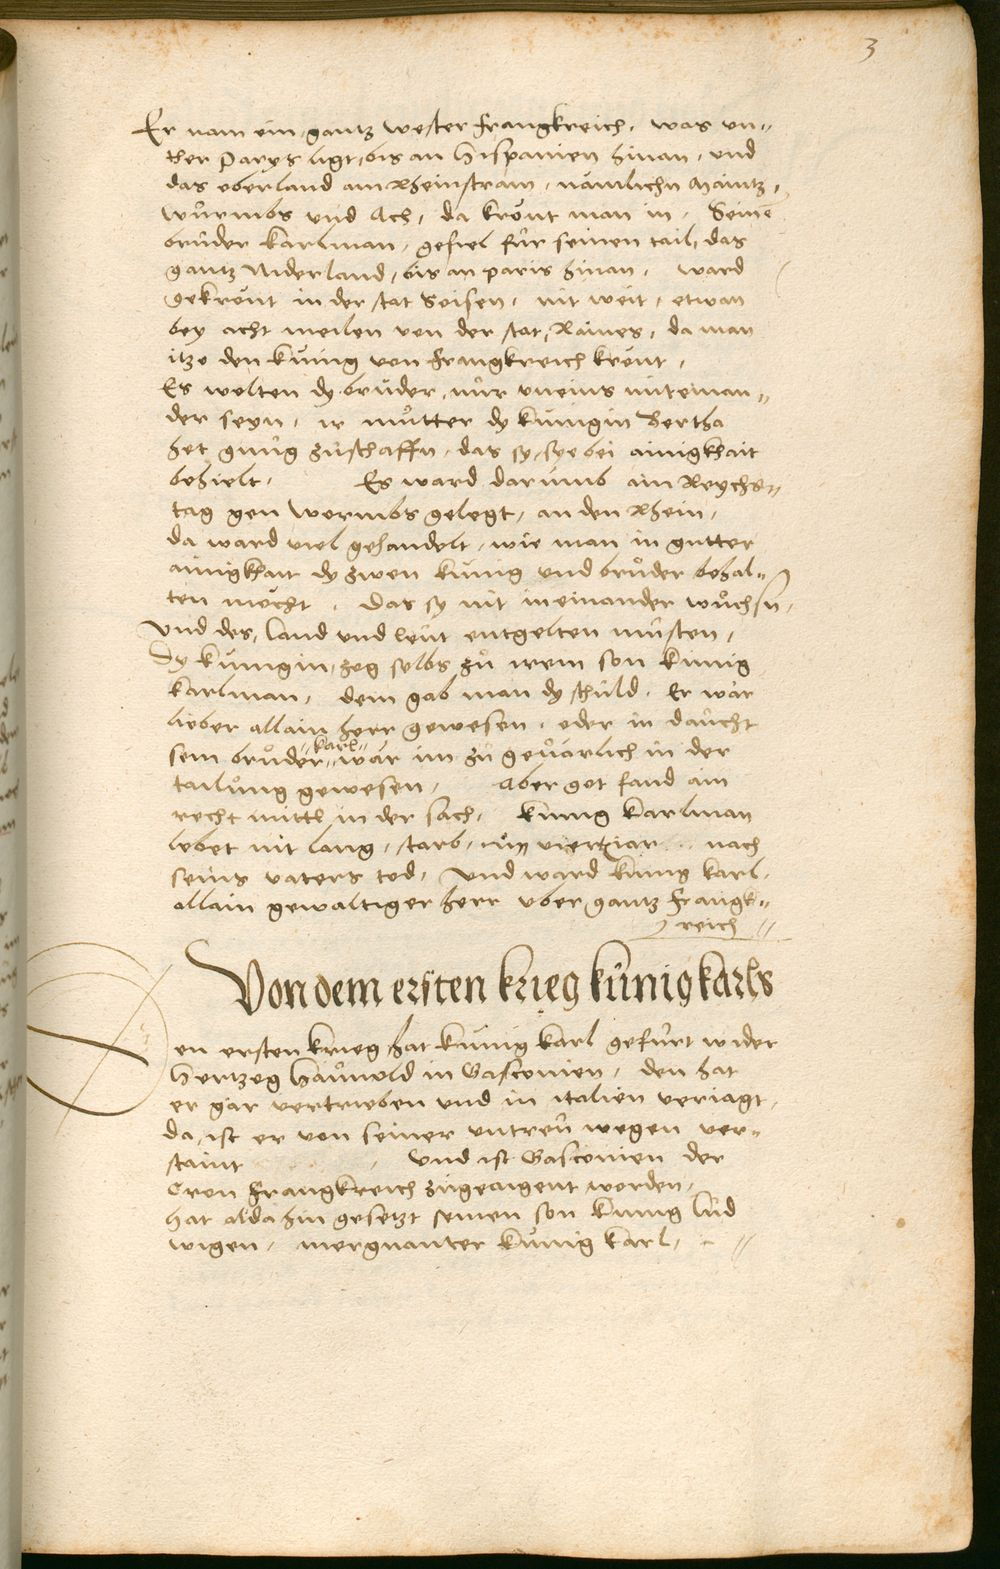 3
Er nam ein, gantz wester Frangkreich, was vn-
ther Parys ligt, bis an Hispanien hinan, vnd
das oberland am Rheinstram, nämlichn Maintz,
Wůrmbs vnd Ach, da krönt man in, Seinē
brůder karlman, gefiel für seinen tail, das
gantz Niderland, bis an paris hinan, ward
gekrönt in der stat Soisen, nit weit, etwan
bey acht meilen von der stat, Raines, da man
itzo den künig von Frangkreich krönt,
Es wolten dy brüder, nůr vneins miteinan-
der seyn, ir můtter dy künigin Bertha
het gnůg zůschaffn, das sy, sye bei ainigkhait
behielt, Es ward darůmb ain Reychs-
tag gen Wormbs gelegt, an den Rhein,
da ward viel gehandelt, wie man in gutter
ainigkhait dy zwen künig vnd brůder behal-
ten möcht, das sy nit ineinander wůchsn,
vnd des, land vnd leüt entgelten müsten,
Dy künigin, zog selbs zů irem son künig
karlman, dem gab man dy schůld, Er wär
lieber allain herr gewesen, oder in daücht
sein brůder karl wär im zů geuärlich in der
tailůng gewesen, Aber got fand ain
recht mittl in der sach, künig karlman
lebet nit lang, starb, im viertn iar nach
seins vaters tod, Vnd ward künig karl,
allain gewaltiger herr vber gantz Frangk-
reich
Von dem ersten krieg künig karls
Den ersten krieg hat künig karl gefürt wider
Hertzog Haůnold in Gasconien, den hat
er gar vertrieben vnd in italien veriagt,
da, ist er von seiner vntreü wegen ver-
staint, Vnd ist Gasconien der
Cron Frangkreich zügeaigent worden,
hat aldahin gesetzt seinen son künig Lůd
wigen, mergnanter künig karl,